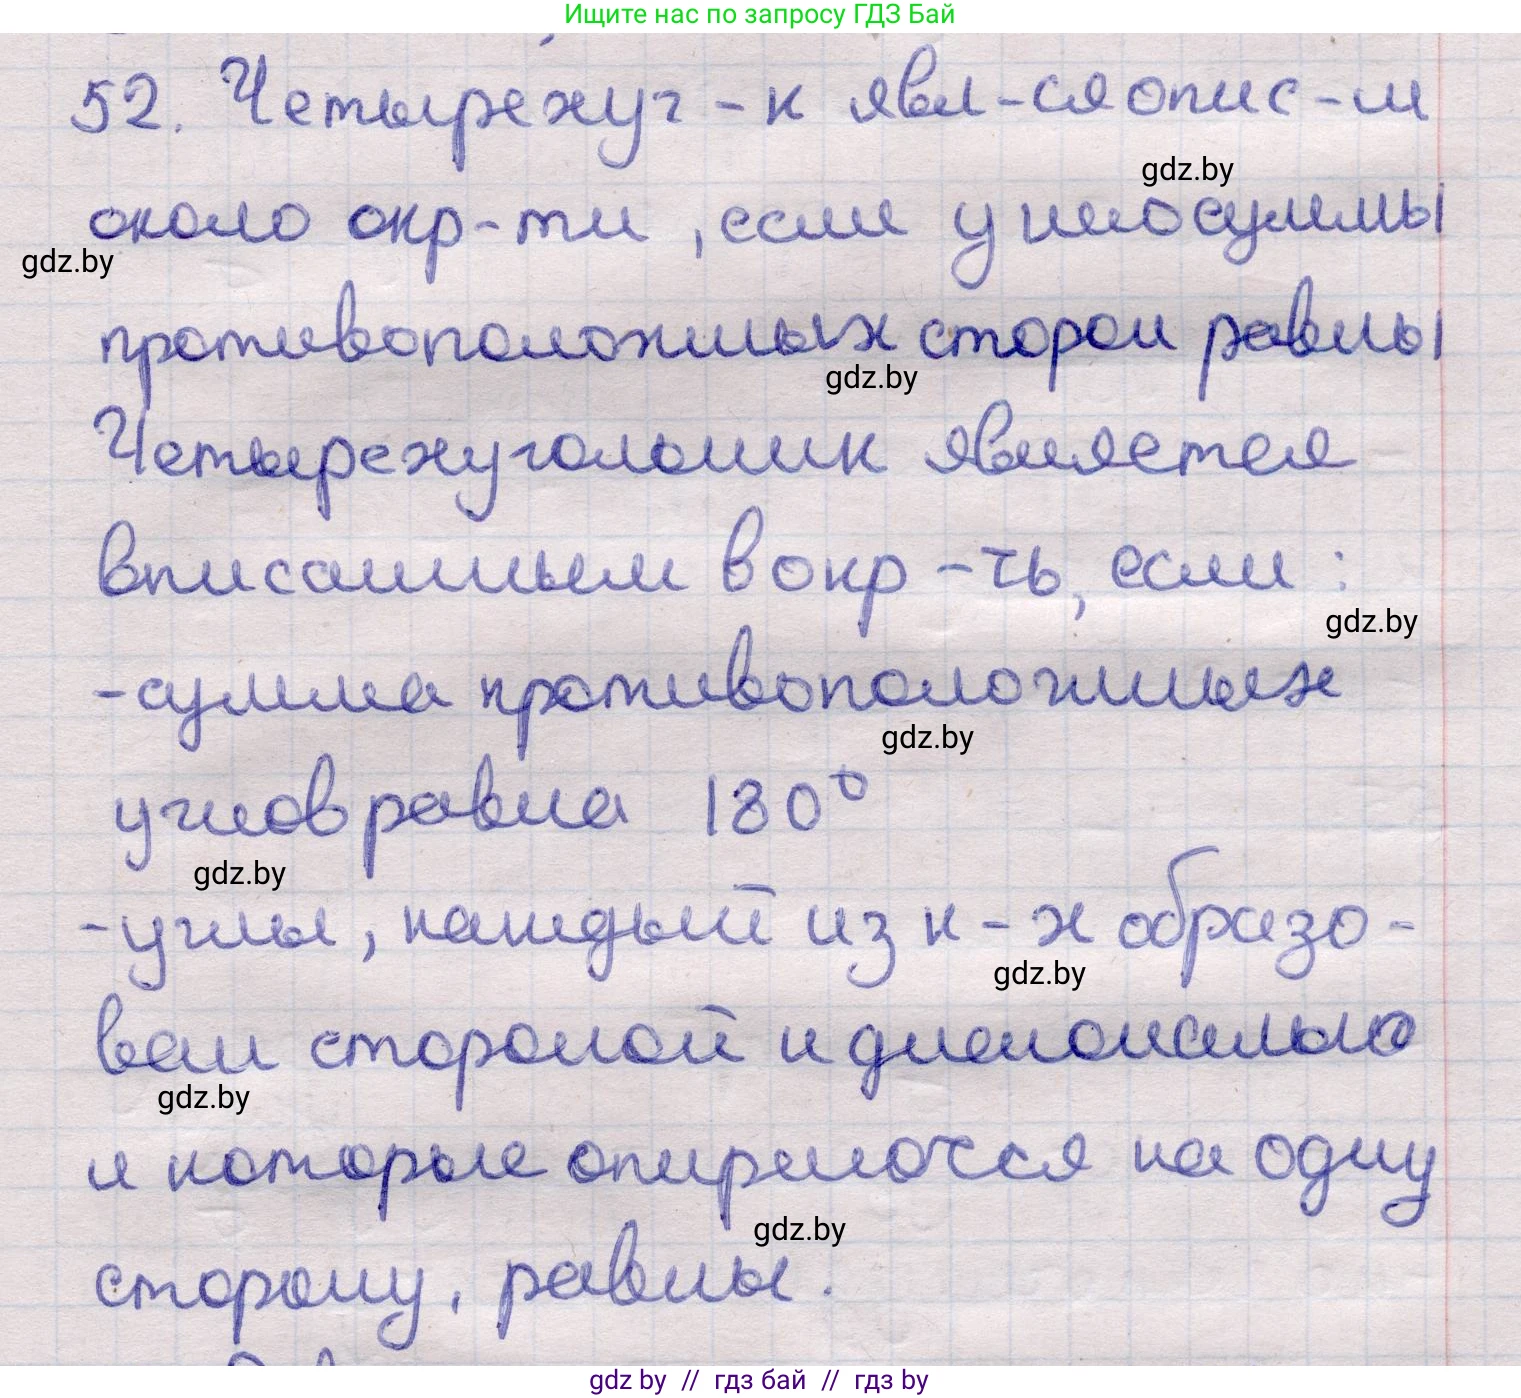 Ищите нас по запросу ГДЗ Бай
52. Четырехуг-к явл-ся опис-м
gdz.by
около окр-ти, если у него суммы
gdz.by
противоположных сторон равны
gdz.by
Четырехугольник является
вписанным в окр-ть, если:
gdz.by
-сумма противоположных
gdz.by
углов равна 180°
gdz.by
-углы, каждый из к-х образо-
gdz.by
ван стороной и диагональю
gdz.by
и которые опираются на одну
gdz.by
сторону, равны.
gdz.by // гдз бай // гдз by